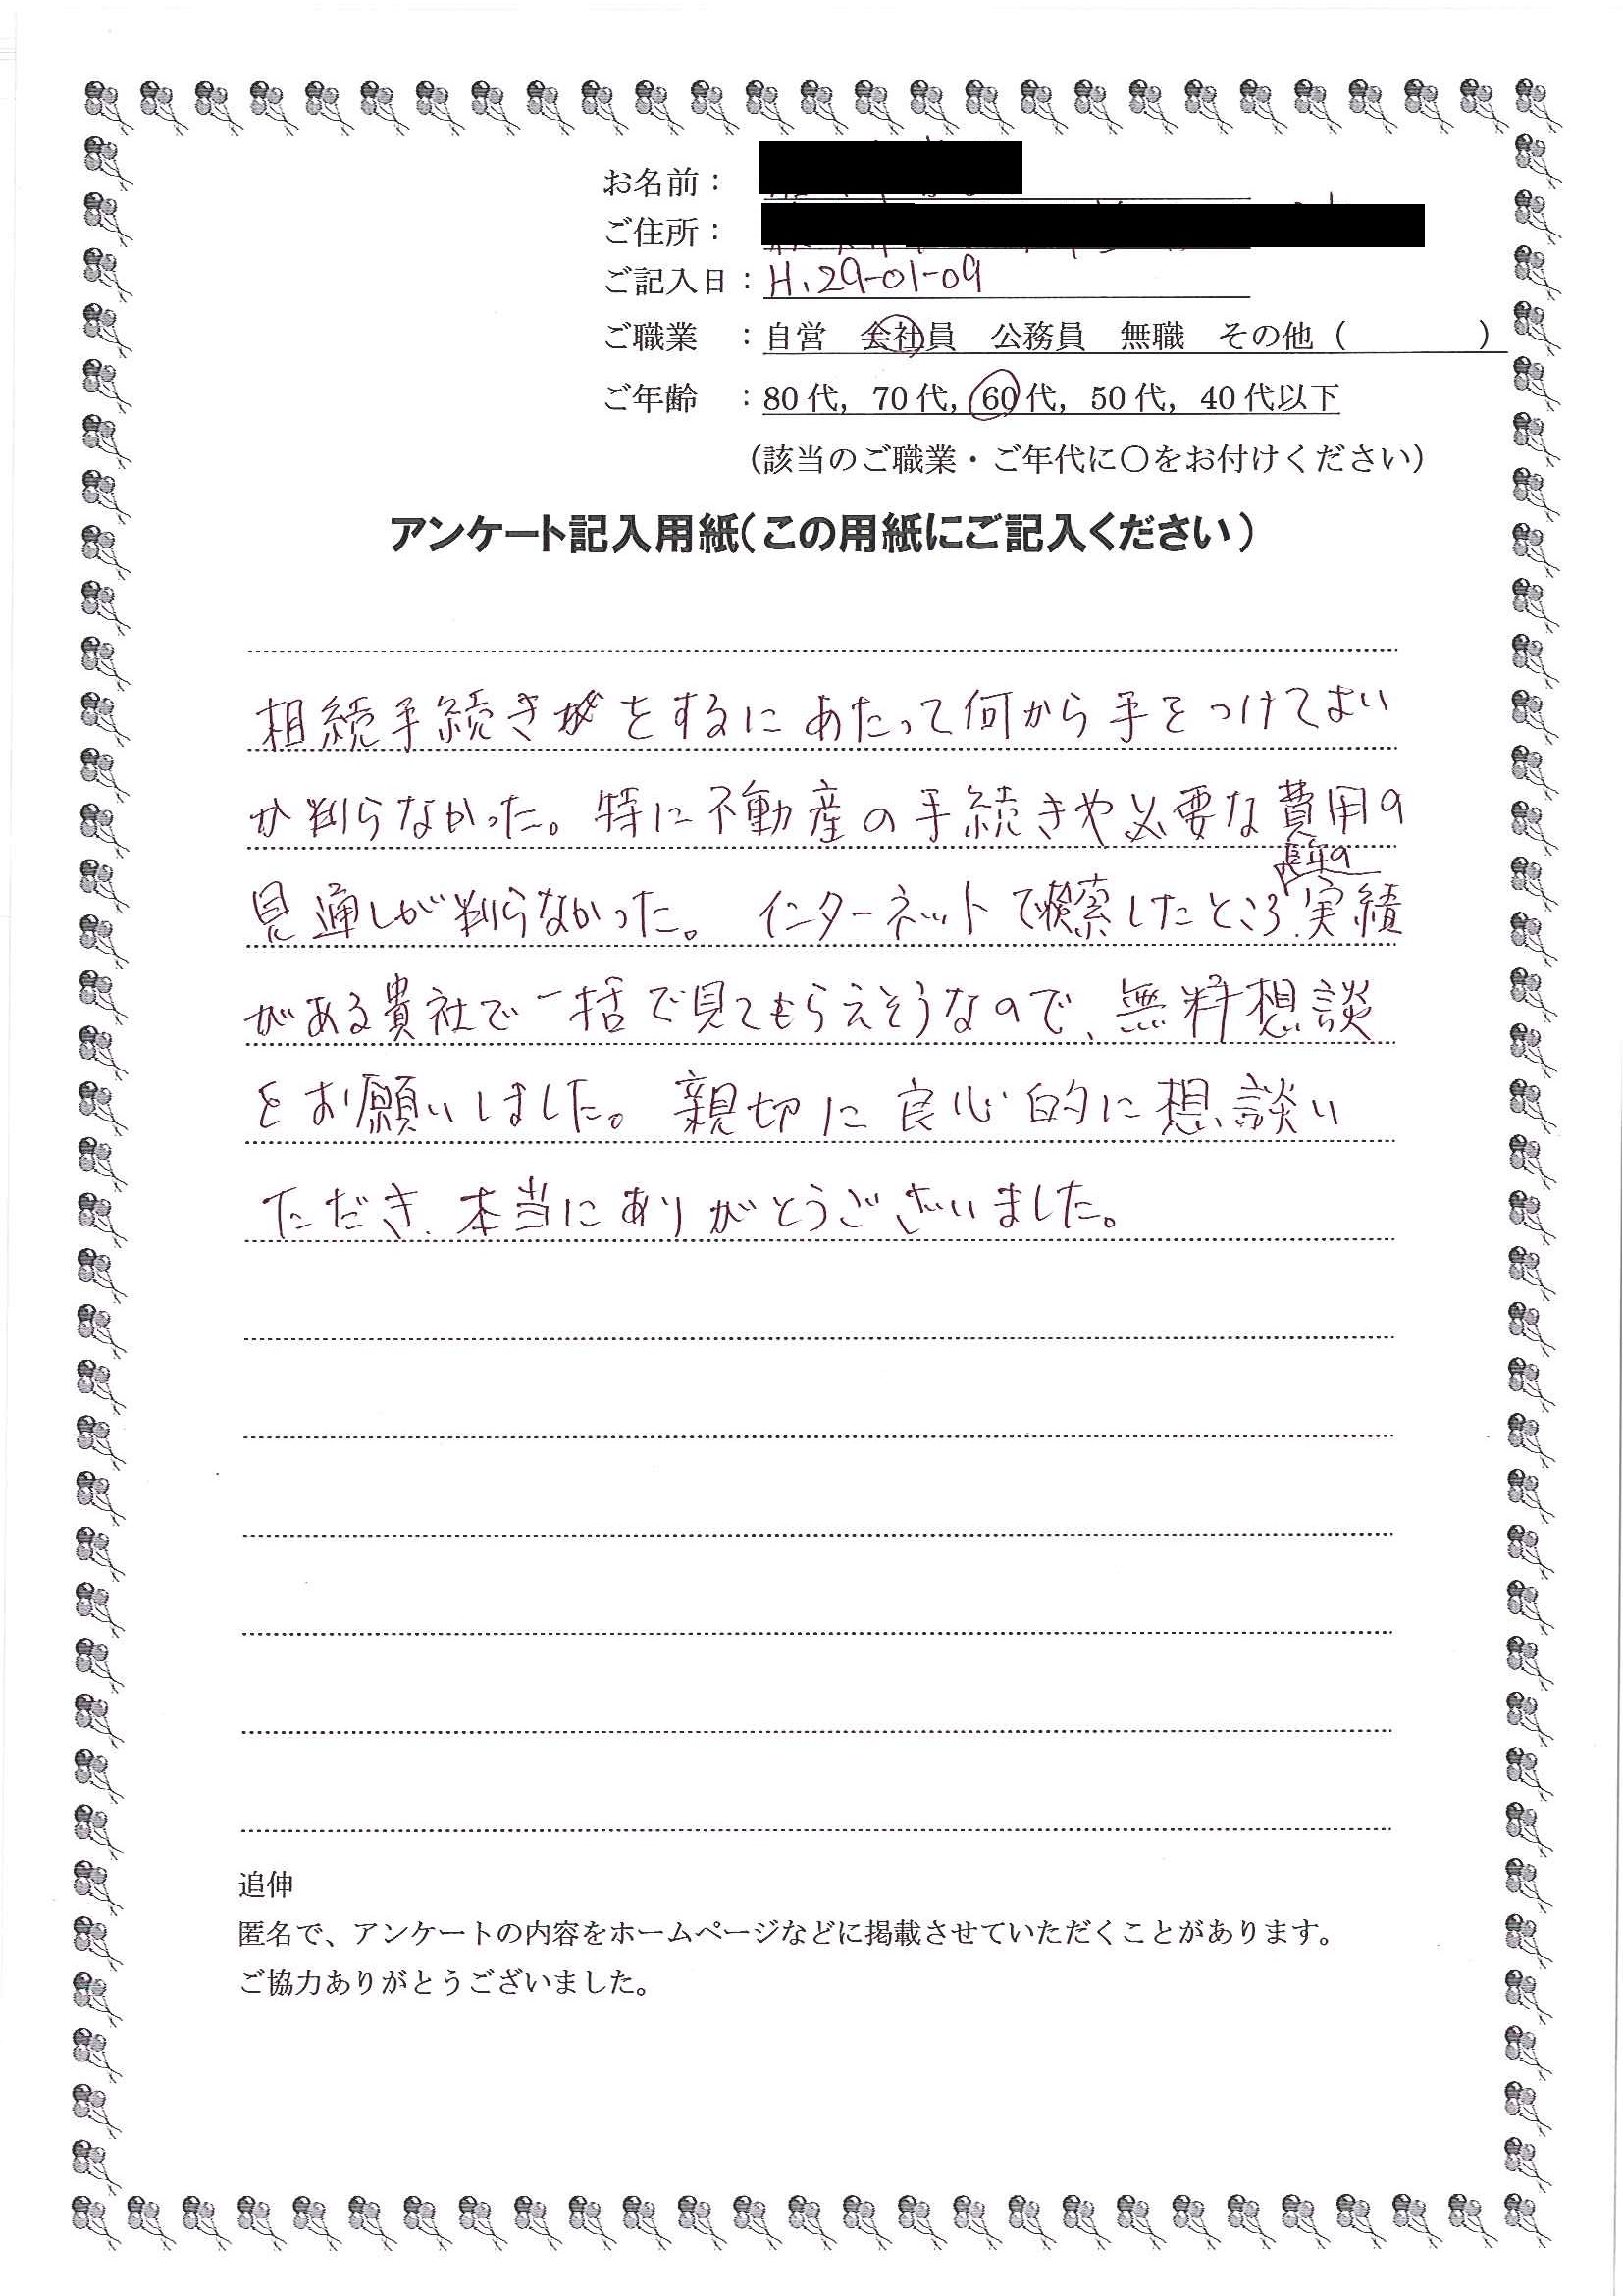 お名前：
ご住所：
ご記入日：H.29-01-09
ご職業　：自営　会社員　公務員　無職　その他（　　　　）
ご年齢　：80代，70代，60代，50代，40代以下
（該当のご職業・ご年代に〇をお付けください）
アンケート記入用紙（この用紙にご記入ください）
相続手続きをするにあたって何から手をつけてよい
か判らなかった。特に不動産の手続きや必要な費用の
見通しが判らなかった。　インターネットで検索したところ、長年の実績
がある貴社で一括で見てもらえそうなので、無料想談
をお願いしました。親切に良心的に想談い
ただき、本当にありがとうございました。
追伸
匿名で、アンケートの内容をホームページなどに掲載させていただくことがあります。
ご協力ありがとうございました。